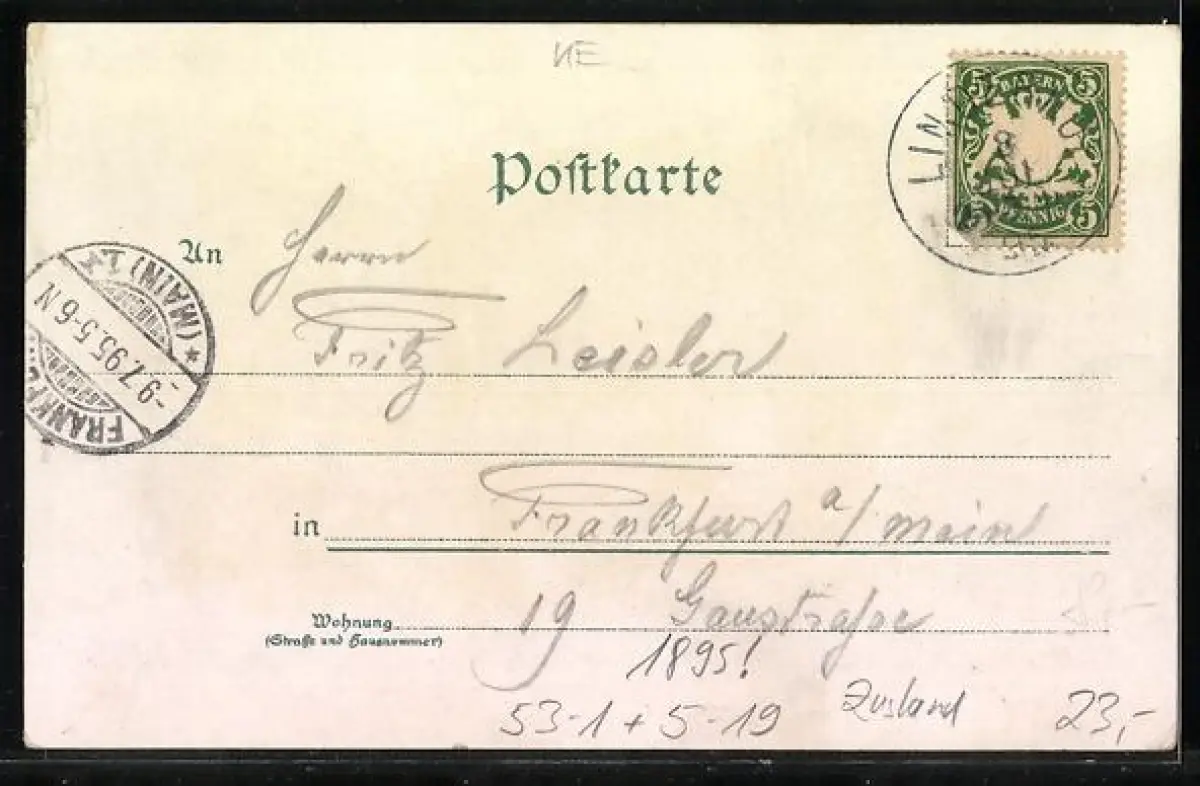 KE
5 BAYERN 5
PFENNIG 5
LIN
8
Postkarte
An Herrn
Fritz Leisler
FRANKF (MAIN) 1. *
-9.7.95.5-6N
in Frankfurt a/Main
Wohnung 19 Gaustraße
(Straße und Hausnummer)
1895!
53-1+5-19
Zustand
23,-